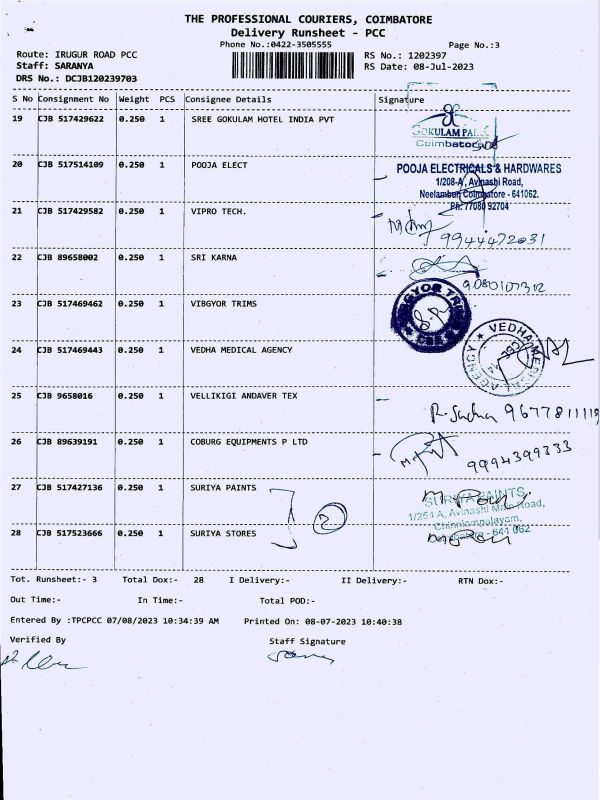 THE PROFESSIONAL COURIERS, COIMBATORE
Delivery Runsheet - PCC
Phone No.:0422-3505555
Page No.:3
Route: IRUGUR ROAD PCC
RS No.: 1202397
Staff: SARANYA
RS Date: 08-Jul-2023
DRS No.: DCJB120239703
S No Consignment No Weight PCS Consignee Details Signature
19 CJB 517429622 0.250 1 SREE GOKULAM HOTEL INDIA PVT
GOKULAM PARK
Coimbatore
20 CJB 517514109 0.250 1 POOJA ELECT
POOJA ELECTRICALS & HARDWARES
1/208-A, Avinashi Road,
Neelambur, Coimbatore - 641062.
Ph: 77080 92704
21 CJB 517429582 0.250 1 VIPRO TECH.
9944472031
22 CJB 89658002 0.250 1 SRI KARNA
9080107312
23 CJB 517469462 0.250 1 VIBGYOR TRIMS
VIBGYOR TRIMS
24 CJB 517469443 0.250 1 VEDHA MEDICAL AGENCY
VEDHA MEDICAL AGENCY
25 CJB 9658016 0.250 1 VELLIKIGI ANDAVER TEX
R. Sudha 9677811119
26 CJB 89639191 0.250 1 COBURG EQUIPMENTS P LTD
9994399333
27 CJB 517427136 0.250 1 SURIYA PAINTS
2
SURIYA PAINTS
1/251 A, Avinashi Main Road,
Chinniampalayam,
641 062
28 CJB 517523666 0.250 1 SURIYA STORES
Tot. Runsheet:- 3 Total Dox:- 28 I Delivery:- II Delivery:- RTN Dox:-
Out Time:- In Time:- Total POD:-
Entered By :TPCPCC 07/08/2023 10:34:39 AM Printed On: 08-07-2023 10:40:38
Verified By Staff Signature